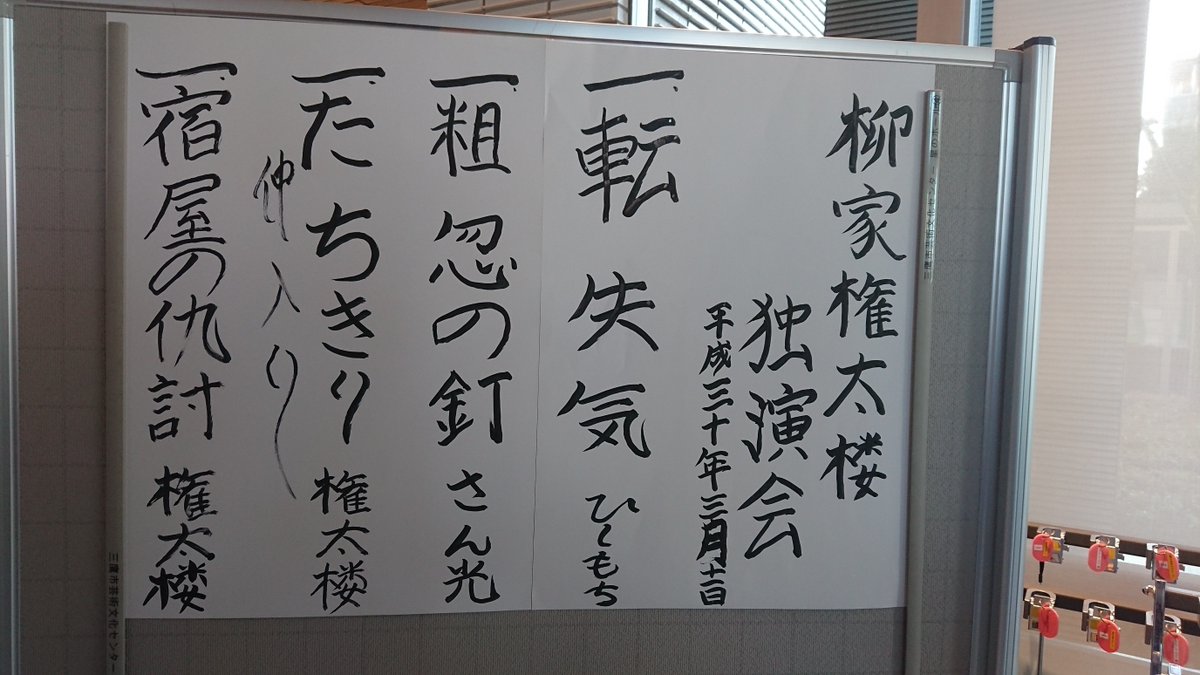 柳家権太楼
独演会
平成三十年三月十一日
一、転失気 ひともち
一、粗忽の釘 さん光
一、たちきり 権太楼
仲入り
一、宿屋の仇討 権太楼
三鷹市芸術文化センター